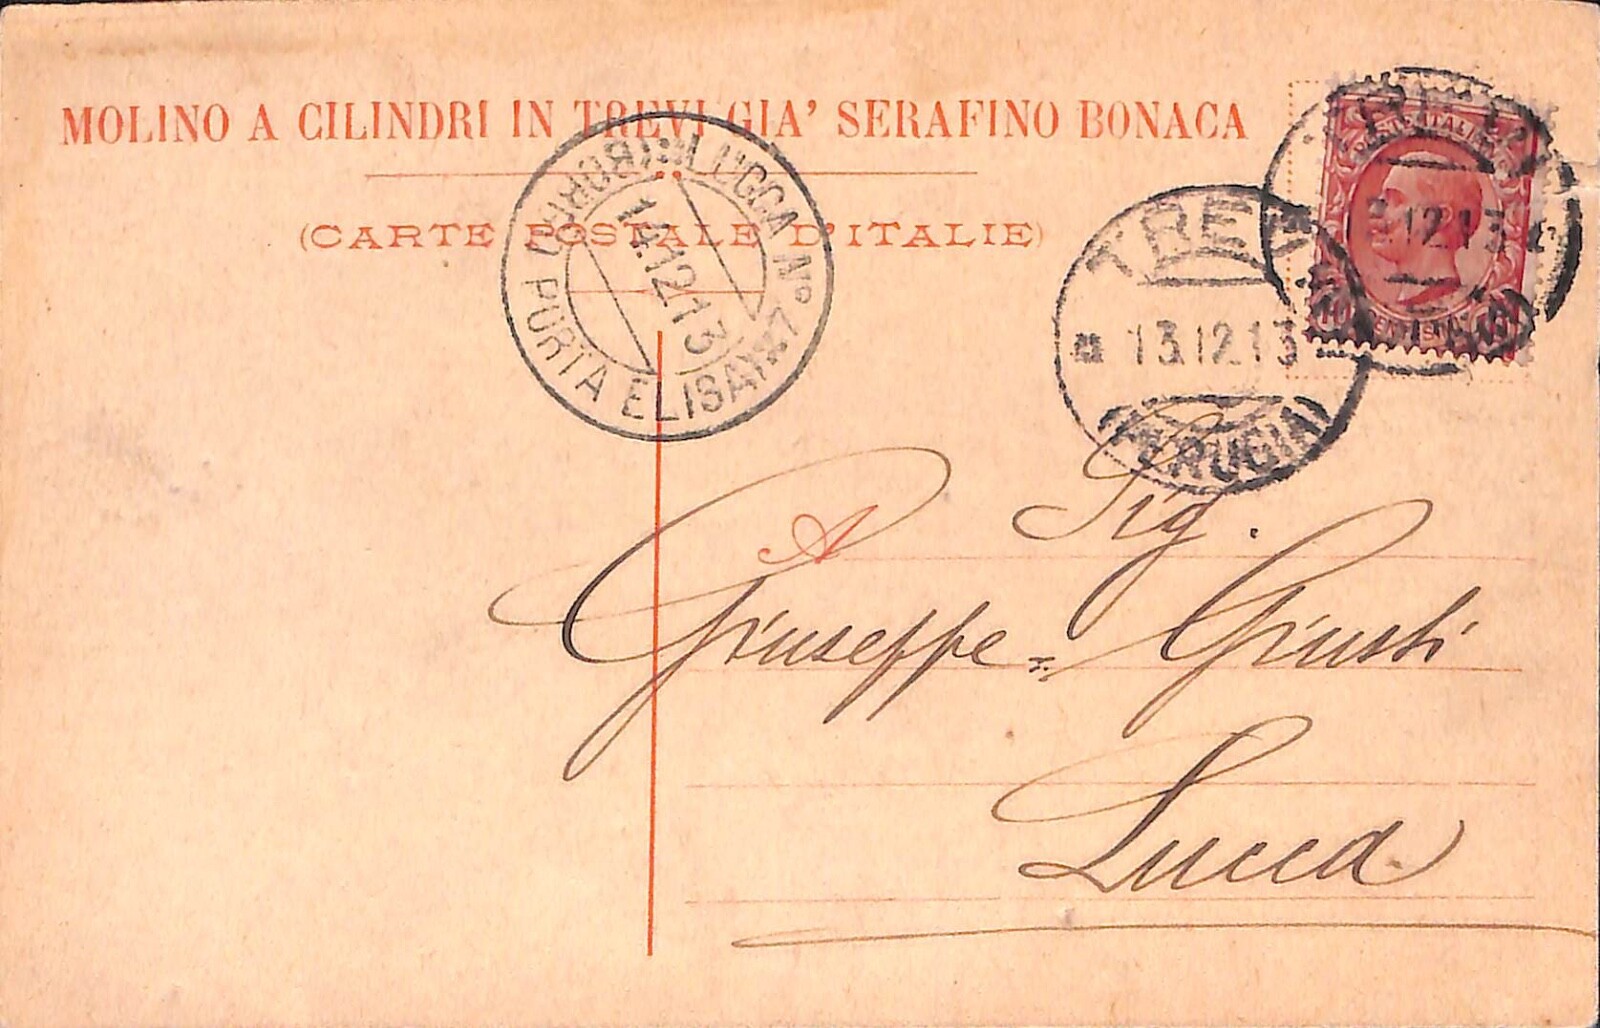 MOLINO A CILINDRI IN TREVI GIA' SERAFINO BONACA
(CARTE POSTALE D'ITALIE)
LUCCA Nº 7
14.12.13
PORTA ELISA
TREVI
13.12.13
(PERUGIA)
POSTE ITALIANE
.12.13
10
A
Sig.
Giuseppe Giusti
Lucca